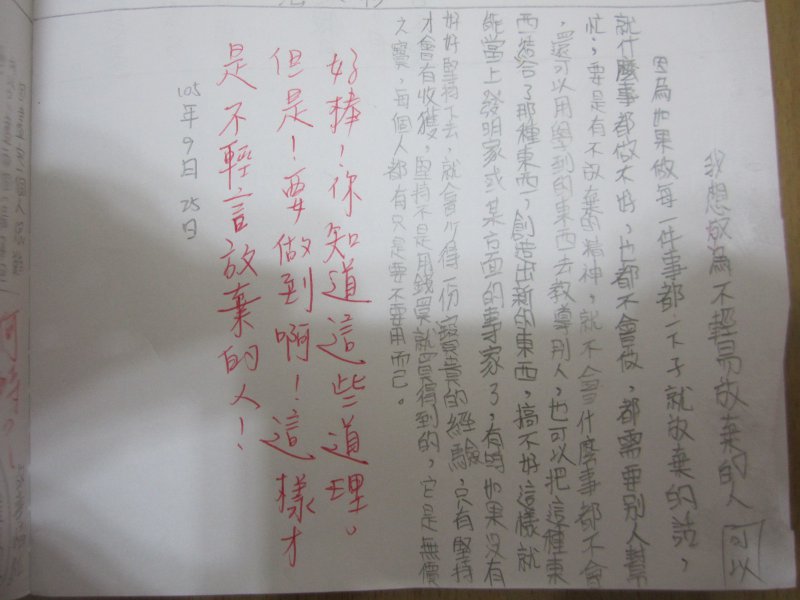 我想成為不輕易放棄的人
可以
因為如果做每一件事都一下子就放棄的話，
就什麼事都做不好，也都不會做，都需要別人幫
忙；要是有不放棄的精神，就不會什麼事都不會
，還可以用學到的東西去教導別人，也可以把這種東
西結合了那種東西，創造出新的東西，搞不好這樣就
能當上發明家或某方面的專家了，有時如果沒有
好好堅持下去，就會少得一份寶貴的經驗，只有堅持
才會有收獲，堅持不是用錢買就買得到的，它是無價
之寶，每個人都有只是要不要用而已。
好棒！你知道這些道理。
但是！要做到啊！這樣才
是不輕言放棄的人！
105年9日25日